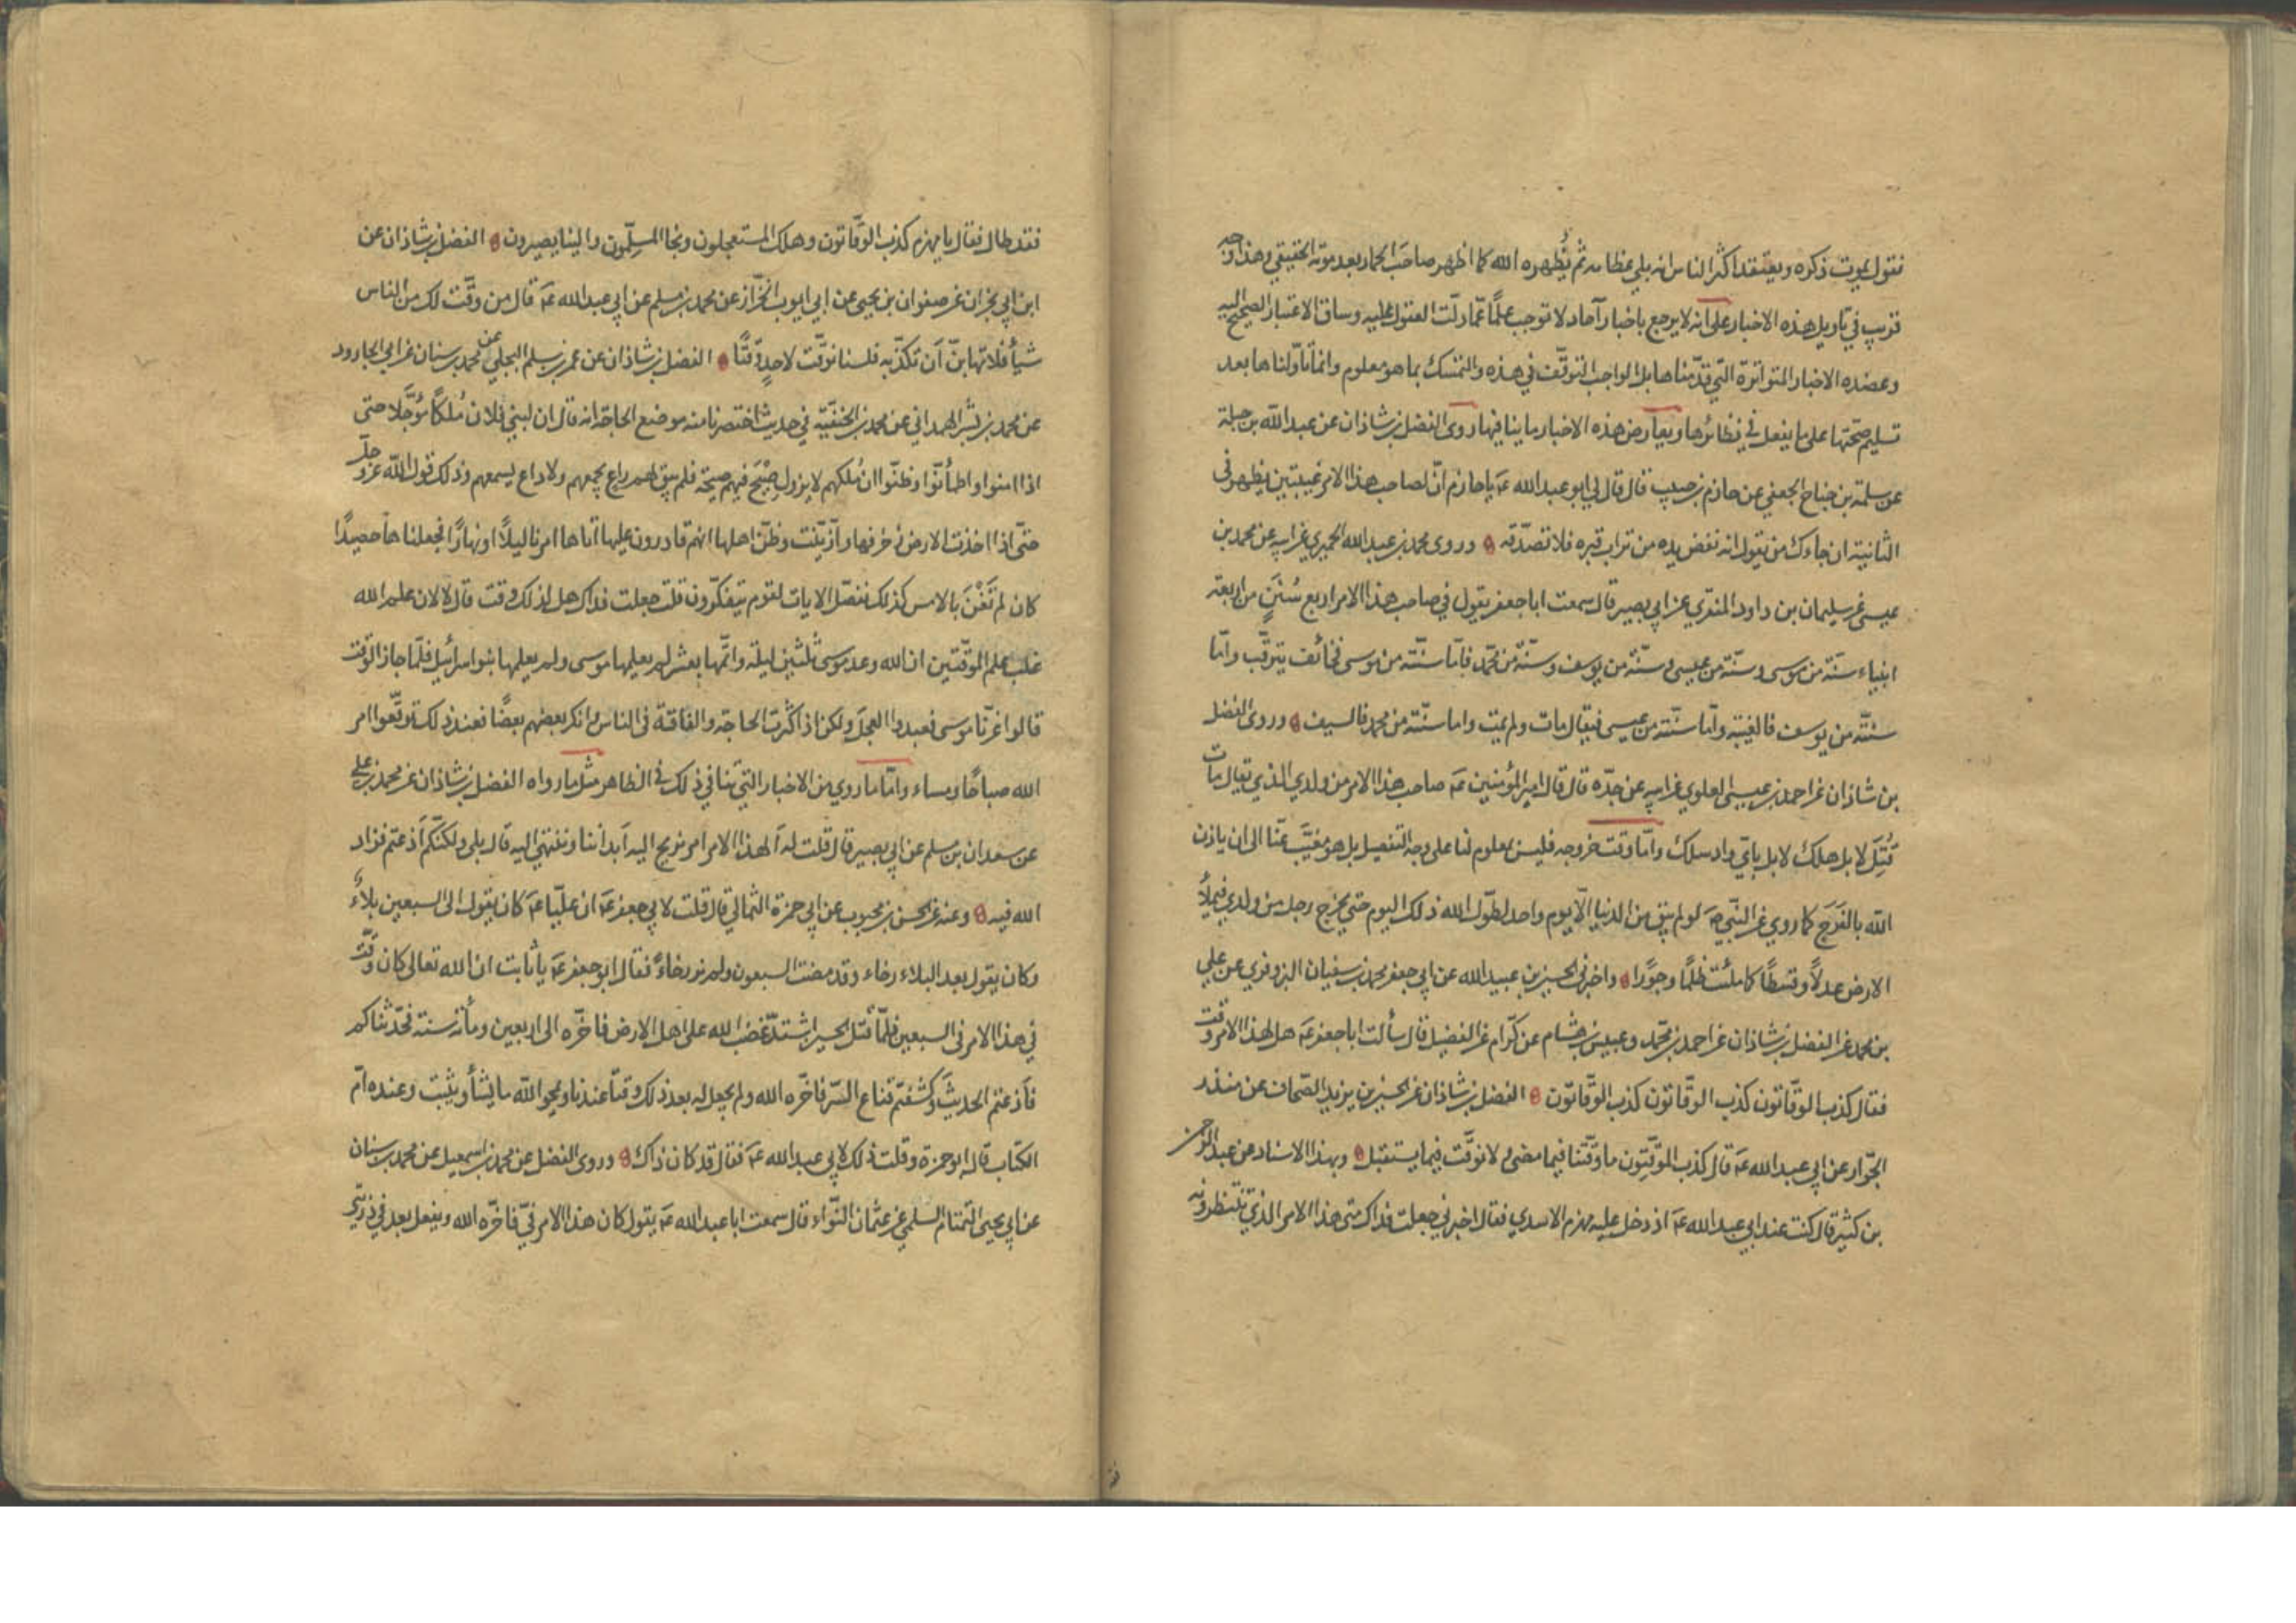 فنقول يموت ذكره ويعتقد اكثر الناس انه بلي عظامه ثم يُظهره الله كما اظهر صاحَب الحمار بعد موته الحقيقي وهذا وجه
قريب في تاويل هذه الاخبار على انه لا يرجع باخبار آحاد لا توجب علمًا عمّا دلّت العقول عليه وساق الاعتبار الصحيح اليه
وعضده الاخبار المتواترة التي قدّمناها بل الواجب التوقّف في هذه والتمسك بما هو معلوم وانما تاوّلناها بعد
تسليم صحّتها على ما يفعل في نظائرها ويعارض هذه الاخبار ما ينافيها روى الفضل بن شاذان عن عبد الله بن جبلة
عن سلمة بن جناح الجعفي عن حازم بن حبيب قال قال لي ابو عبد الله عَ يا حازم انّ لصاحب هذا الامر غيبتين يظهر في
الثانية ان جاءك من يقول انه نفض يده من تراب قبره فلا تصدّقه وروى محمد بن عبد الله الحميري عن ابيه عن محمد بن
عيسى عن سليمان بن داود المنقري عن ابي بصير قال سمعت ابا جعفر يقول في صاحب هذا الامر اربع سُنَنٍ من اربعة
انبياء سنّة من موسى وسنّة من عيسى وسنّة من يوسف وسنّة من محمّد فامّا سنّته من موسى فخائف يترقّب وامّا
سنّته من يوسف فالغيبة وامّا سنّته من عيسى فيقال مات ولم يمت واما سنّته من محمد فالسيف وروى الفضل
بن شاذان عن احمد بن عيسى العلوي عن ابيه عن جدّه قال قال امير المؤمنين عَ صاحب هذا الامر من ولدي الذي يقال مات
قُتِلَ لا بل هلك لا بل باىّ واد سلك وامّا وقت خروجه فليس بمعلوم لنا على وجه التفصيل بل هو مغيَّب عنّا الى ان ياذن
الله بالفَرَج كما روي عن النّبي صَ لو لم يبق من الدنيا الّا يوم واحد لطوّل الله ذلك اليوم حتي يخرج رجل من ولدي فيملأ
الارض عدلًا وقسطًا كما ملئت ظلمًا وجورًا واخبرني الحسين بن عبيد الله عن ابي جعفر محمد بن سفيان البزوفري عن علي
بن محمد عن الفضل بن شاذان عن احمد بن محمّد وعبيس بن هشام عن كرّام عن الفضيل قال سألت ابا جعفر عَ هل لهذا الامر وقت
فقال كذب الوقّاتون كذب الوقّاتون كذب الوقّاتون الفضل بن شاذان عن الحسين بن يزيد الصّحاف عن منذر
الجوّاز عن ابي عبد الله عَ قال كذب الموقّتون ما وقّتنا فيما مضى ولا نوقّت فيما يستقبل وبهذا الاسناد عن عبد الرحمن
بن كثير قال كنت عند ابي عبد الله عَ اذ دخل عليه مهزم الاسدي فقال اخبرني جعلت فداك متى هذا الامر الذي تنتظرونه
فقد طال فقال يا مهزم كذب الوقّاتون وهلك المستعجلون ونجا المسلّمون والينا يصيرون الفضل بن شاذان عن
ابن ابي نجران عن صفوان بن يحيى عن ابي ايوب الخزّاز عن محمد بن مسلم عن ابي عبد الله عَ قال من وقّت لك من الناس
شيأ فلا تهابنّ ان تكذّبه فلسنا نوقّت لاحدٍ وقتًا الفضل بن شاذان عن عمر بن مسلم البجلي عن محمد بن سنان عن ابي الجارود
عن محمد بن بشر الهمداني عن محمد بن الحنفيّة في حديث اختصرنا منه موضع الحاجة انه قال ان لبني فلان مُلكًا مؤجّلا حتى
اذا امنوا واطمأنّوا وظنّوا ان مُلكهم لا يزول صِيْحَ فيهم صيحة فلم يبق لهم راع يجمعهم ولا داع يسمعهم وذلك قول الله عزّ وجلّ
حتّى اذا اخذت الارض زخرفها وازيّنت وظنّ اهلها انهم قادرون عليها اتاها امرنا ليلًا او نهارًا فجعلناها حصيدًا
كان لم تَغْنَ بالامس كذلك نفصّل الايات لقوم يتفكّرون قلت جعلت فداك هل لذلك وقت قال لا لان علم الله
غلب علم الموقّتين ان الله وعد موسى ثلثين ليلة واتمّها بعشر لم يعلمها موسى ولم يعلمها بنو اسرائيل فلمّا جاز الوقت
قالوا غرّنا موسى فعبدوا العجل ولكن اذا كثرت الحاجة والفاقة في الناس وانكر بعضهم بعضًا فعند ذلك توقّعوا امر
الله صباحًا ومساء وامّا ما روي من الاخبار التي تنافي ذلك في الظاهر مثل ما رواه الفضل بن شاذان عن محمد بن علي
عن سعدان بن مسلم عن ابي بصير قال قلت له ألهذا الامر امر نريح اليه ابداننا وننتهي اليه قال بلى ولكنّكم اذعتم فزاد
الله فيه وعنه عن الحسن بن محبوب عن ابي حمزة الثمالي قال قلت لابي جعفر عَ ان عليّا عَ كان يقول الى السبعين بلاء
وكان يقول بعد البلاء رخاء وقد مضت السبعون ولم نر رخاءً فقال ابو جعفر عَ يا ثابت ان الله تعالى كان وقّت
في هذا الامر في السبعين فلمّا قُتل الحسين اشتدّ غضب الله على اهل الارض فاخّره الى اربعين ومأة سنة فحدّثناكم
فاذعتم الحديث وكشفتم قناع السّر فاخّره الله ولم يجعل له بعد ذلك وقتًا عندنا ويمحو الله ما يشأ ويثبت وعنده امّ
الكتاب قال ابو حمزة وقلت ذلك لابي عبد الله عَ فقال قد كان ذاك وروى الفضل عن محمد بن اسمعيل عن محمد بن سنان
عن ابي يحيى التمتام السلمي عن عثمان النّواء قال سمعت ابا عبد الله عَ يقول كان هذا الامر فيّ فاخّره الله ويفعل بعد في ذريتي